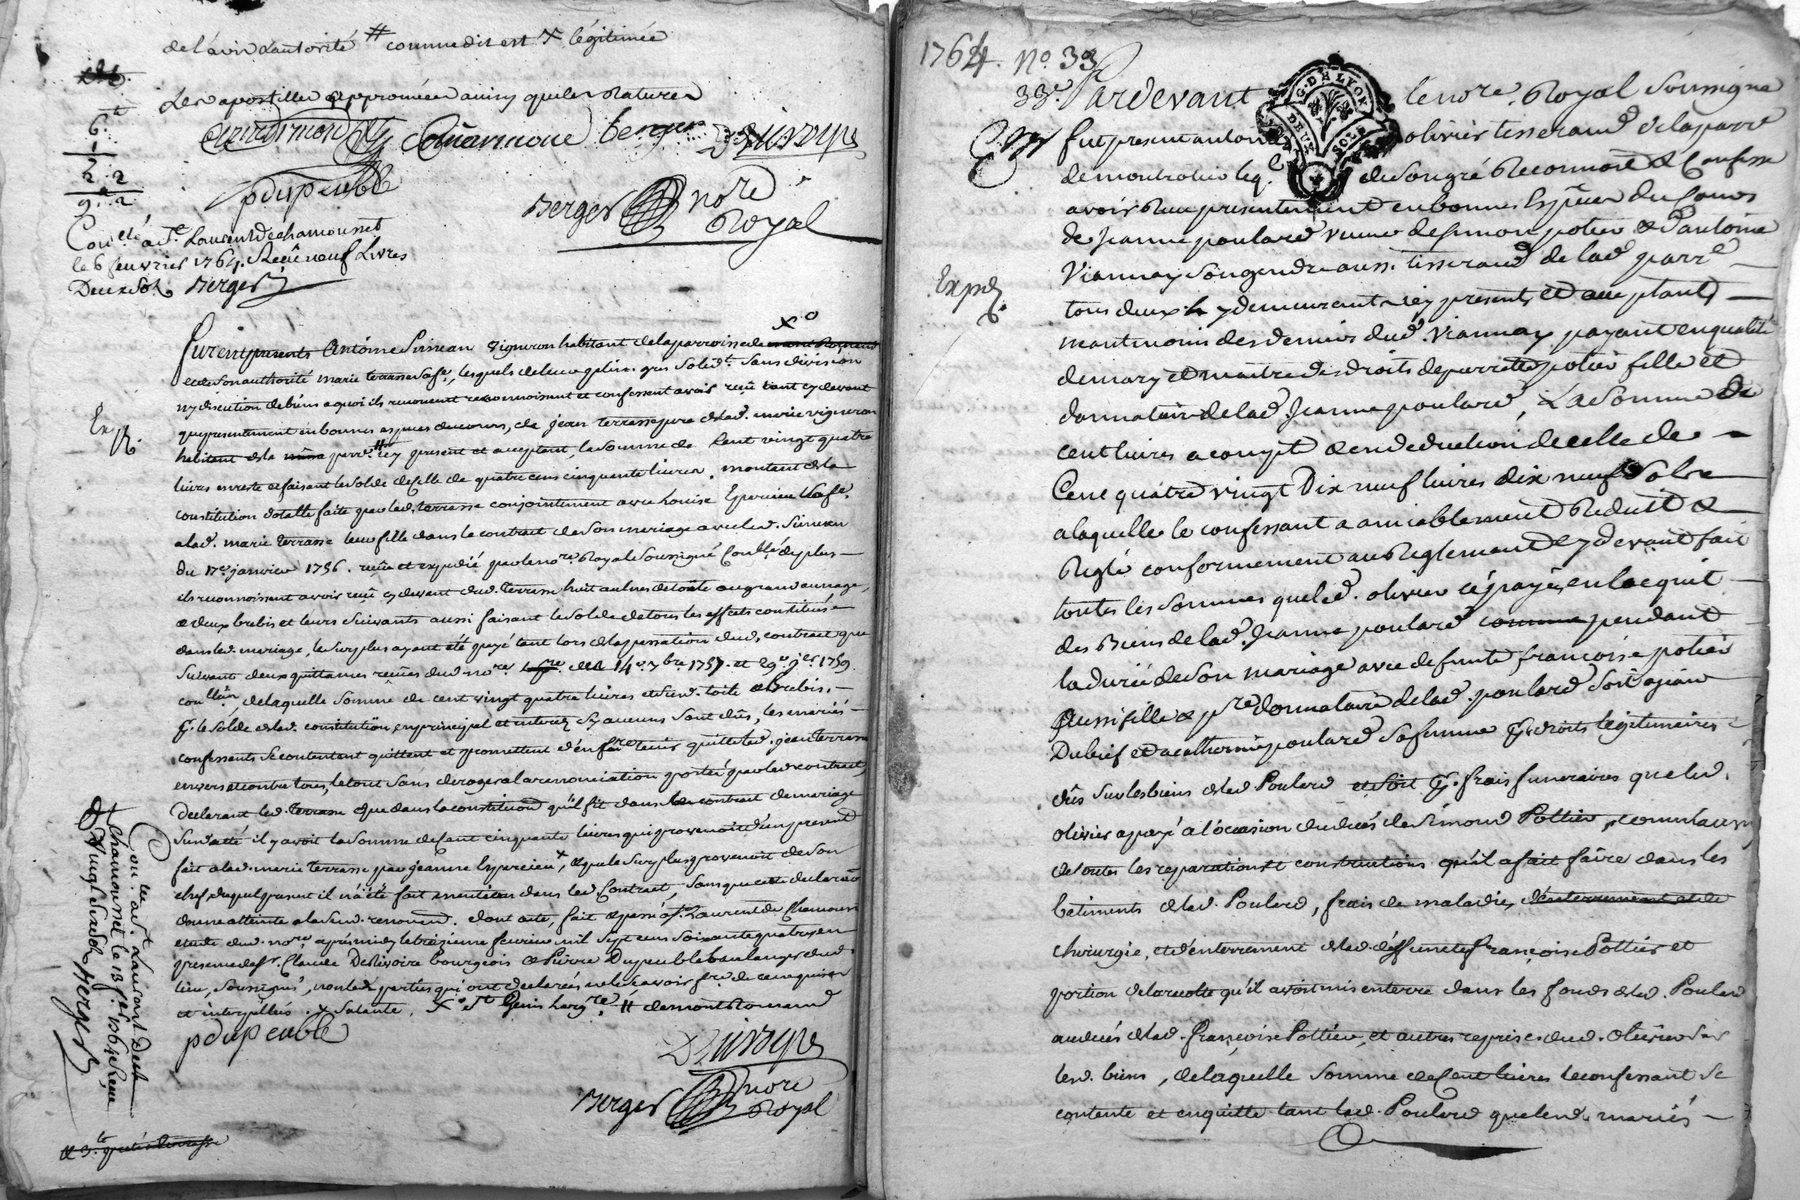 de l'avis d'autorité # comme dit est X légitimée
Les apostilles approuvées ainsy que les ratures
Chavanne berger
Dussuye
pdupeuble
Berger nore
Royal
6
1
2 2
9 2
Con.lé à S.t Laurent de chamousset
le 6 feuvrier 1764. Reçû neuf Livres
Deux Sols Berger
Furent presents Antoine Simean vigneron habitant de la parroisse de
et de son authorité marie terrasse sa fe. lesquels de leur gré solid.t sans division
ny discution de biens a quoi ils renoncent reconnoissent et confessent avoir reçû tant cy devant
que presentement en bonnes especes de cours, de jean terrasse pere de lad. marie vigneron
habitant de la parr.e icy present et acceptant, la somme de Cent vingt quatre
livres en reste et faisant le solde de celle de quatre cens cinquante livres, montant de la
constitution dotalle faite par led. terrasse conjointement avec Louise Epercieu sa fe.
a lad. marie terrasse leur fille dans le contrat de son mariage avec led. Simean
du 17e janvier 1756. reçû et expedié par le nore Royal Soussigné Con.llé de plus
ils reconnoissent avoir reçû cy devant dud. terrasse huit aulnes de toile au grand aunage,
et deux brebis et leurs suivants aussi faisant le solde de tous les effets constitués
dans led. mariage, le surplus ayant été payé tant lors de la passation dud. contract que
suivant deux quittances reçûes dud. nore les 14e 7bre 1757. et 29e 9bre 1759.
con.llées, de laquelle somme de cent vingt quatre livres et sud. toile et brebis,
p. le solde de lad. constitution, en principal et interez sy aucuns sont dûs, les mariés
confessants se contentent quittent et promettent d'en faire tenir quitte led. jean terrasse
envers et contre tous, le tout sans deroger a la renonciation portée par led. contract,
Declarant led. terrasse que dans la constitution qu'il fit dans le contrat de mariage
sud. daté il y avoit la somme de cent cinquante livres qui provenoit d'un present
fait a lad. marie terrasse par jeanne Epercieu X, et que le surplus provenoit de son
chef duquel present il n'a été fait mention dans led. Contract, sans que cette declaration
donne atteinte a la sud. renonciation. dont acte, fait et passé a S.t Laurent de Chamousset
etude dud. nore aprés midy le treizieme fevrier mil sept cens soixante quatre, en
presence de sr. Claude Desuoire bourgeois et Pierre Dupeuble boulanger dud.
lieu, soussignés, non led. parties qui ont declarées ne le sçavoir fre. de ce enquises
et interpellées. X Sa tante, X° S.t Genis L'arg.re # de mont Romand
pdupeuble
Dussuye
Berger nore
Royal
Exp.
Con.lé à S.t Laurent de
Chamousset le 13 f.er 1764 Reçu
vingt six sols Berger
1764. N.o 33
33.e Pardevant le nore. Royal Soussigné
G. DE LYON
DEUX SOLS
fut present antoine olivier tisserand de la parre
de montrotier leq.l de son gré Reconnoit et Confesse
avoir Reçu presentement en bonnes Espèces du Cours
de Jeanne poulard veuve de simon potier et D'antoine
Viannay son gendre aussi tisserand de lad parr.e
tous deux y demeurants icy presents et acceptants
maritnoins des deniers dud. Viannay payant en qualité
de mary et maitre des droits de pierrette potier fille et
donnataire de lad Jeanne poulard, La Somme De
cent livres a compte et en deduction de celle de
Cent quatre vingt Dix neuf livres dix neuf sols
a laquelle le confessant a amiablement Reduit et
Reglé conformement au Reglement cy devant fait
toutes les sommes que led. olivier a payé en lacquit
des Biens de lad. Jeanne poulard comme pendant
la durée de son mariage avec defunte françoise potier
Aussi fille et pre. donnataire de lad. poulard soit a jean
Dubief et a catherine poulard sa femme p. droits legitimaires
dûs sur les biens de lad Poulard et soit p. frais funeraires que led.
olivier a payé a l'occasion du decés de Simond Pottier, comme aussy
de toutes les reparations et constructions qu'il a fait faire dans les
batiments de lad. Poulard, frais de maladie, d'enterrement et de
chirurgie, et d'enterrement de lad. deffunte françoise Pottier et
portion de la recolte qu'il avoit mis en terre dans les fonds de lad. Poulard
au decés de lad. françoise Pottier, et autres reprises dud. olivier sur
lesd. biens, de laquelle somme de Cent livres le confessant se
contente et en quitte tant lad. Poulard que lesd. mariés
Exped.